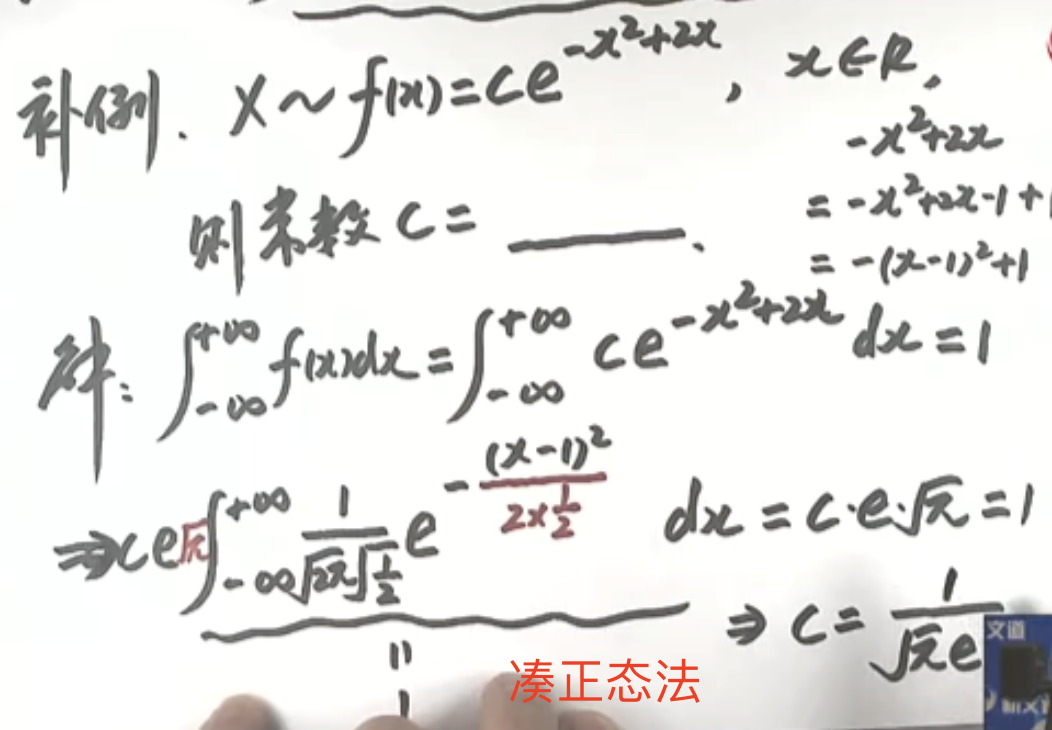 补例. X ~ f(x) = ce^{-x²+2x}, x∈R,
则常数 c = ____.
-x²+2x
= -x²+2x-1+1
= -(x-1)²+1
解: ∫_{-∞}^{+∞} f(x)dx = ∫_{-∞}^{+∞} ce^{-x²+2x} dx = 1
⇒ ce√π ∫_{-∞}^{+∞} \frac{1}{√2π √\frac{1}{2}} e^{-\frac{(x-1)²}{2×\frac{1}{2}}} dx = c·e·√π = 1
"
1
⇒ c = \frac{1}{√π e}
凑正态法
文道